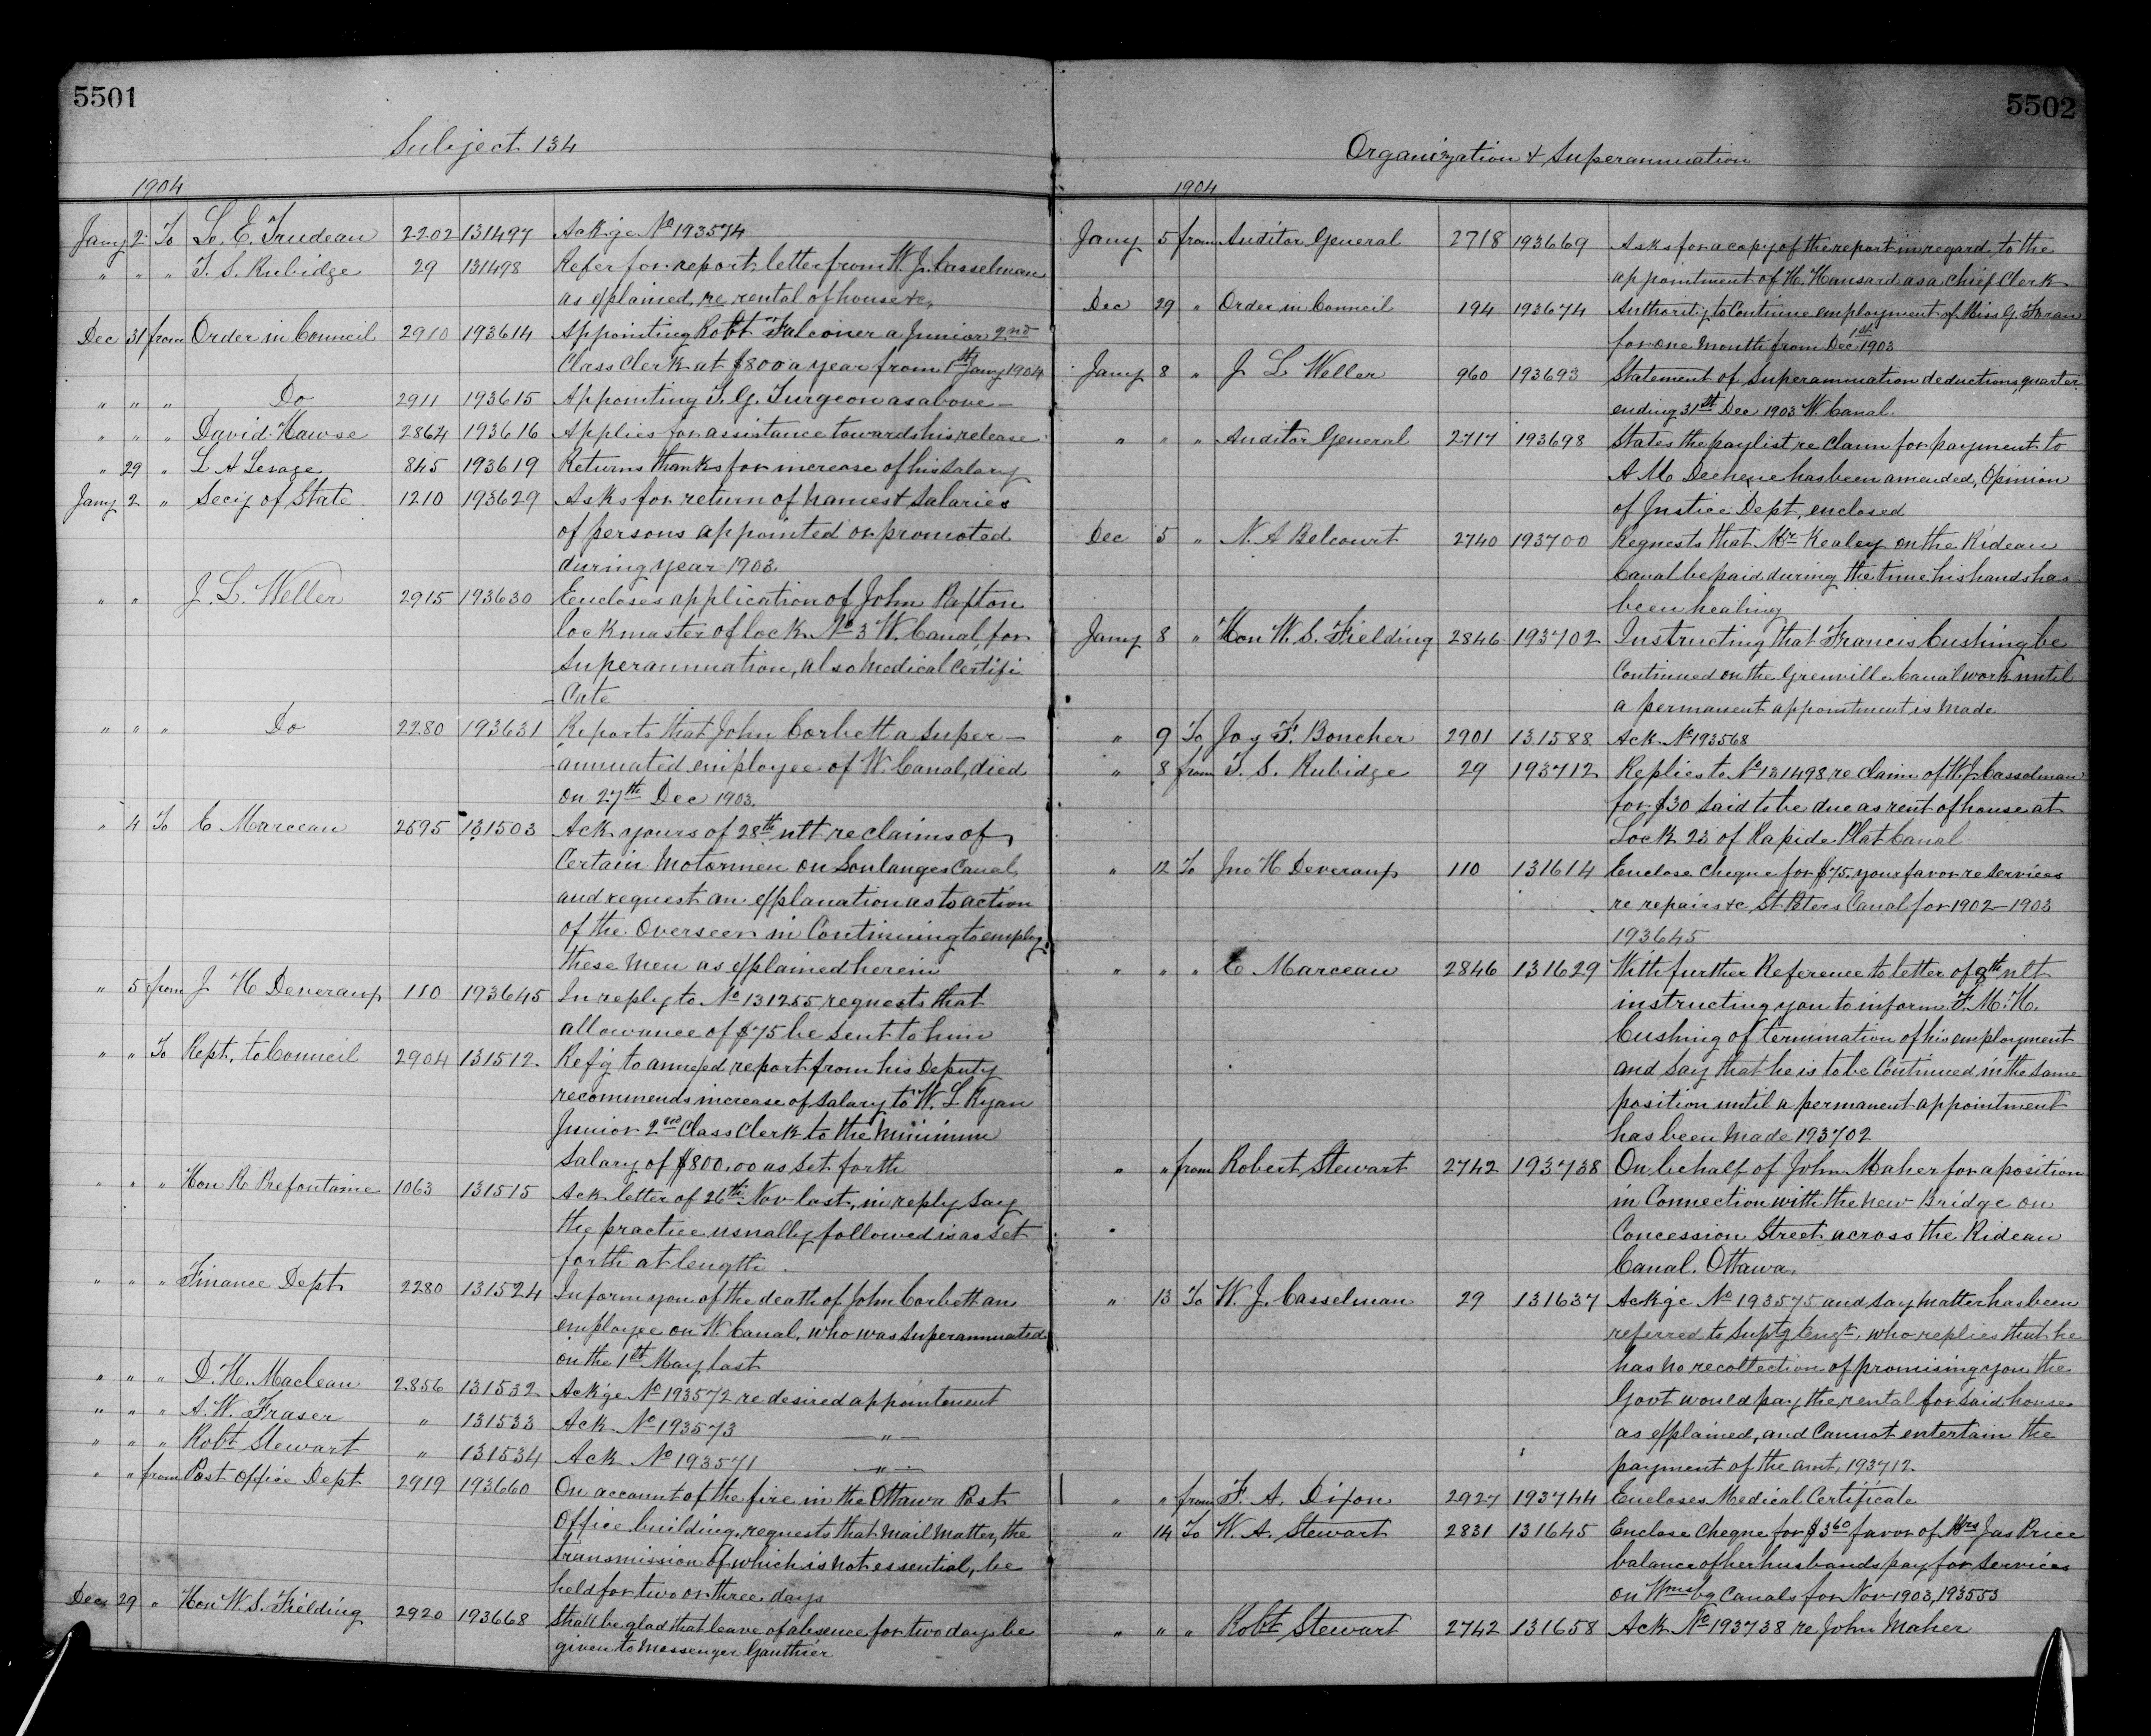 5501
Subject 134
1904
Jany 2 To L. E. Trudeau 2202 131497 Ackge No 193574
" " " T. S. Rubidge 29 131498 Refer for report letter from W. J. Casselman
as explained, re rental of house &c,
Dec 31 from Order in Council 2910 193614 Appointing Robt Falconer a Junior 2nd
Class Clerk at $800 a year from 1st Jany 1904
" " " Do 2911 193615 Appointing T. G. Turgeon as above —
" " " David Hawse 2864 193616 Applies for assistance towards his release
" 29 " L A Lesage 845 193619 Returns thanks for increase of his Salary
Jany 2 " Secy of State 1210 193629 Asks for return of names & Salaries
of persons appointed or promoted
during year 1903.
" " J. L. Weller 2915 193630 Encloses application of John Paxton
lockmaster of lock No 3 W. Canal, for
Superannuation, also Medical Certifi
- Cate
" " " Do 2280 193631 Reports that John Corbett a Super —
- annuated employee of W. Canal, died
on 27th Dec 1903.
" 4 To C Marceau 2595 131503 Ack yours of 28th ult re claims of
Certain Motormen on Soulanges Canal,
and request an explanation as to action
of the Overseer in Continuing to employ
these men as explained herein
" 5 from J H Deveraux 110 193645 In reply to No 131255 requests that
allowance of $75 be sent to him
" " To Rept. to Council 2904 131512 Ref'g to annexed report from his Deputy
recommends increase of Salary to W. L Ryan
Junior 2nd Class Clerk to the Minimum
Salary of $800.00 as set forth
" " " Hon R Prefontaine 1063 131515 Ack letter of 26th Nov last, in reply say
the practice usually followed is as set
forth at length.
" " " Finance Dept 2280 131524 Inform you of the death of John Corbett an
employee on W. Canal, who was Superannuated
on the 1st May last
" " " D. H. Maclean 2856 131532 Ack'ge No 193572 re desired appointment
" " " A. W. Fraser " 131533 Ack No 193573 — " —
" " " Robt Stewart " 131534 Ack No 193571 — " —
" " from Post Office Dept 2919 193660 On account of the fire in the Ottawa Post
Office building, requests that Mail Matter, the
transmission of which is not essential, be
held for two or three days
Dec 29 " Hon W. S. Fielding 2920 193668 Shall be glad that leave of absence for two days be
given to Messenger Gauthier
5502
Organization & Superannuation
1904
Jany 5 from Auditor General 2718 193669 Asks for a copy of the report in regard to the
appointment of H. Hansard as a Chief Clerk
Dec 29 " Order in Council 194 193674 Authority to Continue employment of Miss G. Foran
for one Month from Dec 1st 1903
Jany 8 " J L Weller 960 193693 Statement of Superannuation deductions, quarter
ending 31st Dec 1903 W. Canal.
" " " Auditor General 2717 193698 States the paylist re Claim for payment to
A M Dechene has been amended, Opinion
of Justice Dept, enclosed
Dec 5 " N. A Belcourt 2740 193700 Requests that Mr Kealey on the Rideau
Canal be paid during the time his hands has
been healing
Jany 8 " Hon W. S. Fielding 2846 193702 Instructing that Francis Cushing be
Continued on the Grenville Canal work until
a permanent appointment is made
" 9 To Jos F. Boucher 2901 131588 Ack No 193568
" 8 from T. S. Rubidge 29 193712 Replies to No 131498 re claim of W. J. Casselman
for $30 said to be due as rent of house at
Lock 23 of Rapide Plat Canal
" 12 To Jno H Deveraux 110 131614 Enclose Cheque for $75. your favor re services
re repairs &c St Peters Canal for 1902 — 1903
193645
" " " C Marceau 2846 131629 With further Reference to letter of 9th ult
instructing you to inform F. M. H.
Cushing of termination of his employment
and say that he is to be Continued in the same
position until a permanent appointment
has been made 193702
" " from Robert Stewart 2742 193738 On behalf of John Maher for a position
in Connection with the new Bridge on
Concession Street across the Rideau
Canal. Ottawa.
" 13 To W. J. Casselman 29 131637 Ack'ge No 193575 and say matter has been
referred to Suptg Engr. who replies that he
has no recollection of promising you the
Govt would pay the rental for said house
as explained, and Cannot entertain the
payment of the amt, 193712.
" " from F. A. Dixon 2927 193744 Encloses Medical Certificate
" 14 To W. A. Stewart 2831 131645 Enclose Cheque for $3 60 favor of Mrs Jas Price
balance of her husbands pay for Services
on Wmsbg Canals for Nov 1903, 193553
" " " Robt Stewart 2742 131658 Ack No 193738 re John Maher